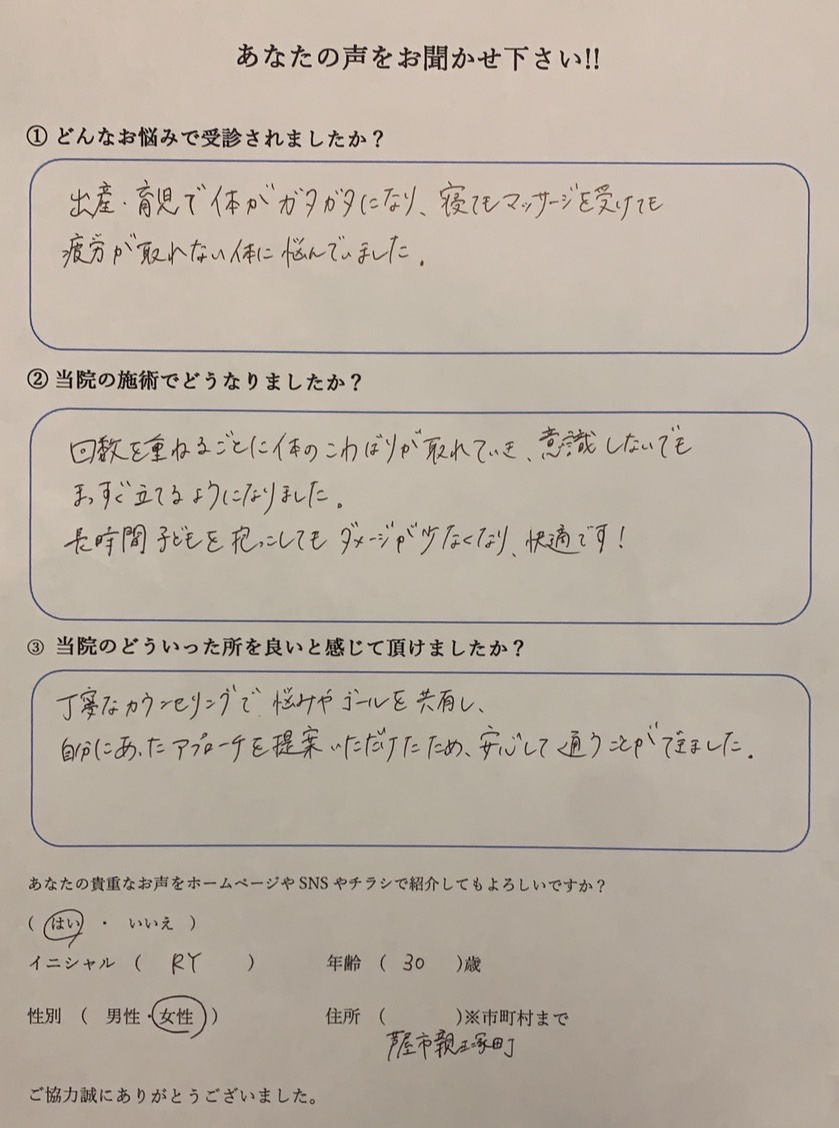 あなたの声をお聞かせ下さい!!
① どんなお悩みで受診されましたか？
出産・育児で体がガタガタになり、寝てもマッサージを受けても
疲労が取れない体に悩んでいました。
② 当院の施術でどうなりましたか？
回数を重ねるごとに体のこわばりが取れていき、意識しないでも
まっすぐ立てるようになりました。
長時間子どもを抱っこしてもダメージが少なくなり、快適です！
③ 当院のどういった所を良いと感じて頂けましたか？
丁寧なカウンセリングで悩みやゴールを共有し、
自分にあったアプローチを提案いただけたため、安心して通うことができました。
あなたの貴重なお声をホームページやSNSやチラシで紹介してもよろしいですか？
（ はい ・ いいえ ）
イニシャル （ RY ） 年齢 （ 30 ）歳
性別 （ 男性・女性 ） 住所 （ ）※市町村まで
芦屋市親王塚町
ご協力誠にありがとうございました。